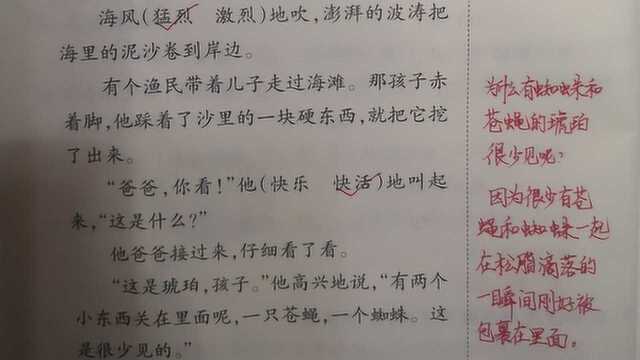 海风(猛烈 激烈)地吹,澎湃的波涛把
海里的泥沙卷到岸边。
有个渔民带着儿子走过海滩。那孩子赤
着脚,他踩着了沙里的一块硬东西,就把它挖
了出来。
“爸爸,你看!”他(快乐 快活)地叫起
来,“这是什么?”
他爸爸接过来,仔细看了看。
“这是琥珀,孩子。”他高兴地说,“有两个
小东西关在里面呢,一只苍蝇,一个蜘蛛。这
是很少见的。”
为什么有蜘蛛和
苍蝇的琥珀
很少见呢?
因为很少有苍
蝇和蜘蛛一起
在松脂滴落的
一瞬间刚好被
包裹在里面。